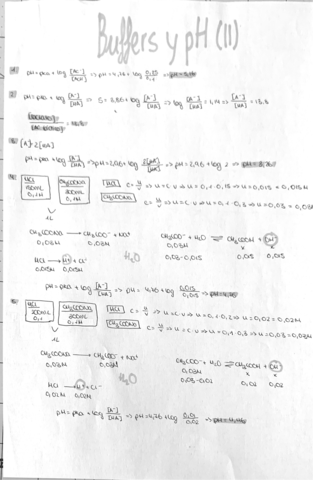 Buffers y pH (II)
1. pH = pKa + log [A⁻]/[AH] => pH = 4,76 + log
2. pH = pKa + log [A⁻]/[HA] => 5 = 3,86 + log [A⁻]/[HA] => log [A⁻]/[HA] = 1,14 => [A⁻]/[HA] = 13,8
3. [A⁻] 2[HA]
pH = pKa + log [A⁻]/[HA] => pH = 2,96 + log 2[HA]/[HA] => pH = 2,96 + log 2 =>
4. HCl 150mL 0,1M CH₃COONa 300mL 0,1M [HCl] C = n/V => n = C·V => n = 0,1·0,15 => n = 0,015 => 0,015M
[CH₃COONa] C = n/V => n = C·V => n = 0,1·0,3 => n = 0,03 => 0,03M
1L
CH₃COONa → CH₃COO⁻ + Na⁺ CH₃COO⁻ + H₂O ⇌ CH₃COOH + OH⁻
0,03M 0,03M 0,03M x x
HCl → H⁺ + Cl⁻ H₂O 0,03-0,015 0,015 0,015
0,015M 0,015M
pH = pKa + log [A⁻]/[HA] => pH = 4,76 + log 0,015/0,015 =>
5. HCl 200mL 0,1 CH₃COONa 300mL 0,1M [HCl] C = n/V => n = C·V => n = 0,1·0,2 => n = 0,02 => 0,02M
[CH₃COONa] C = n/V => n = C·V => n = 0,1·0,3 => n = 0,03 => 0,03M
1L
CH₃COONa → CH₃COO⁻ + Na⁺ CH₃COO⁻ + H₂O ⇌ CH₃COOH + OH⁻
0,03M 0,03M 0,03M x x
HCl → H⁺ + Cl⁻ H₂O 0,03-0,02 0,02 0,02
0,02M 0,02M
pH = pKa + log [A⁻]/[HA] => pH = 4,76 + log 0,01/0,02 =>